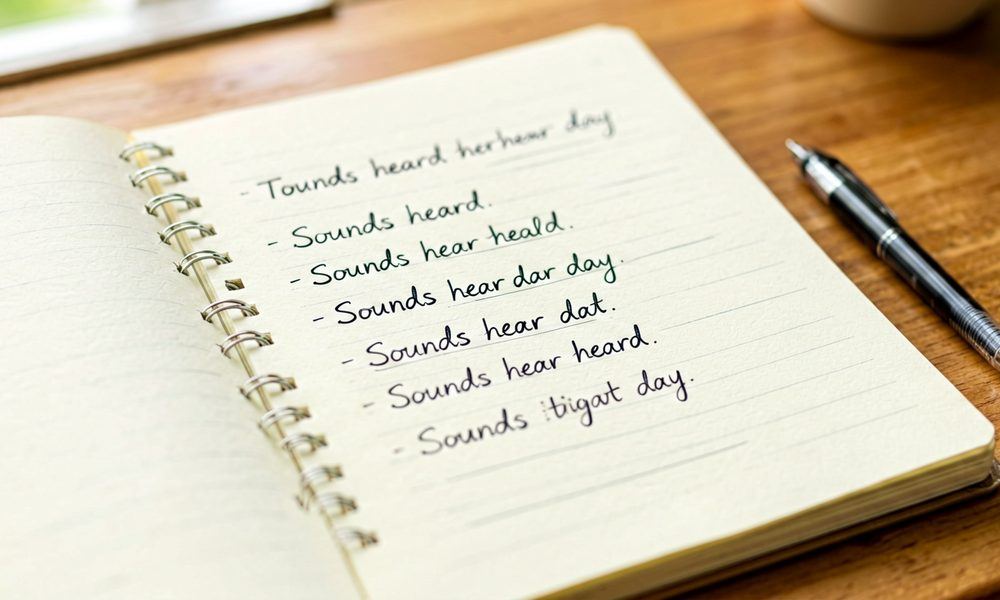 - Tounds heard herhear day
- Sounds heard.
- Sounds hear heald.
- Sounds hear dar day.
- Sounds hear dat.
- Sounds hear heard.
- Sounds tigat day.